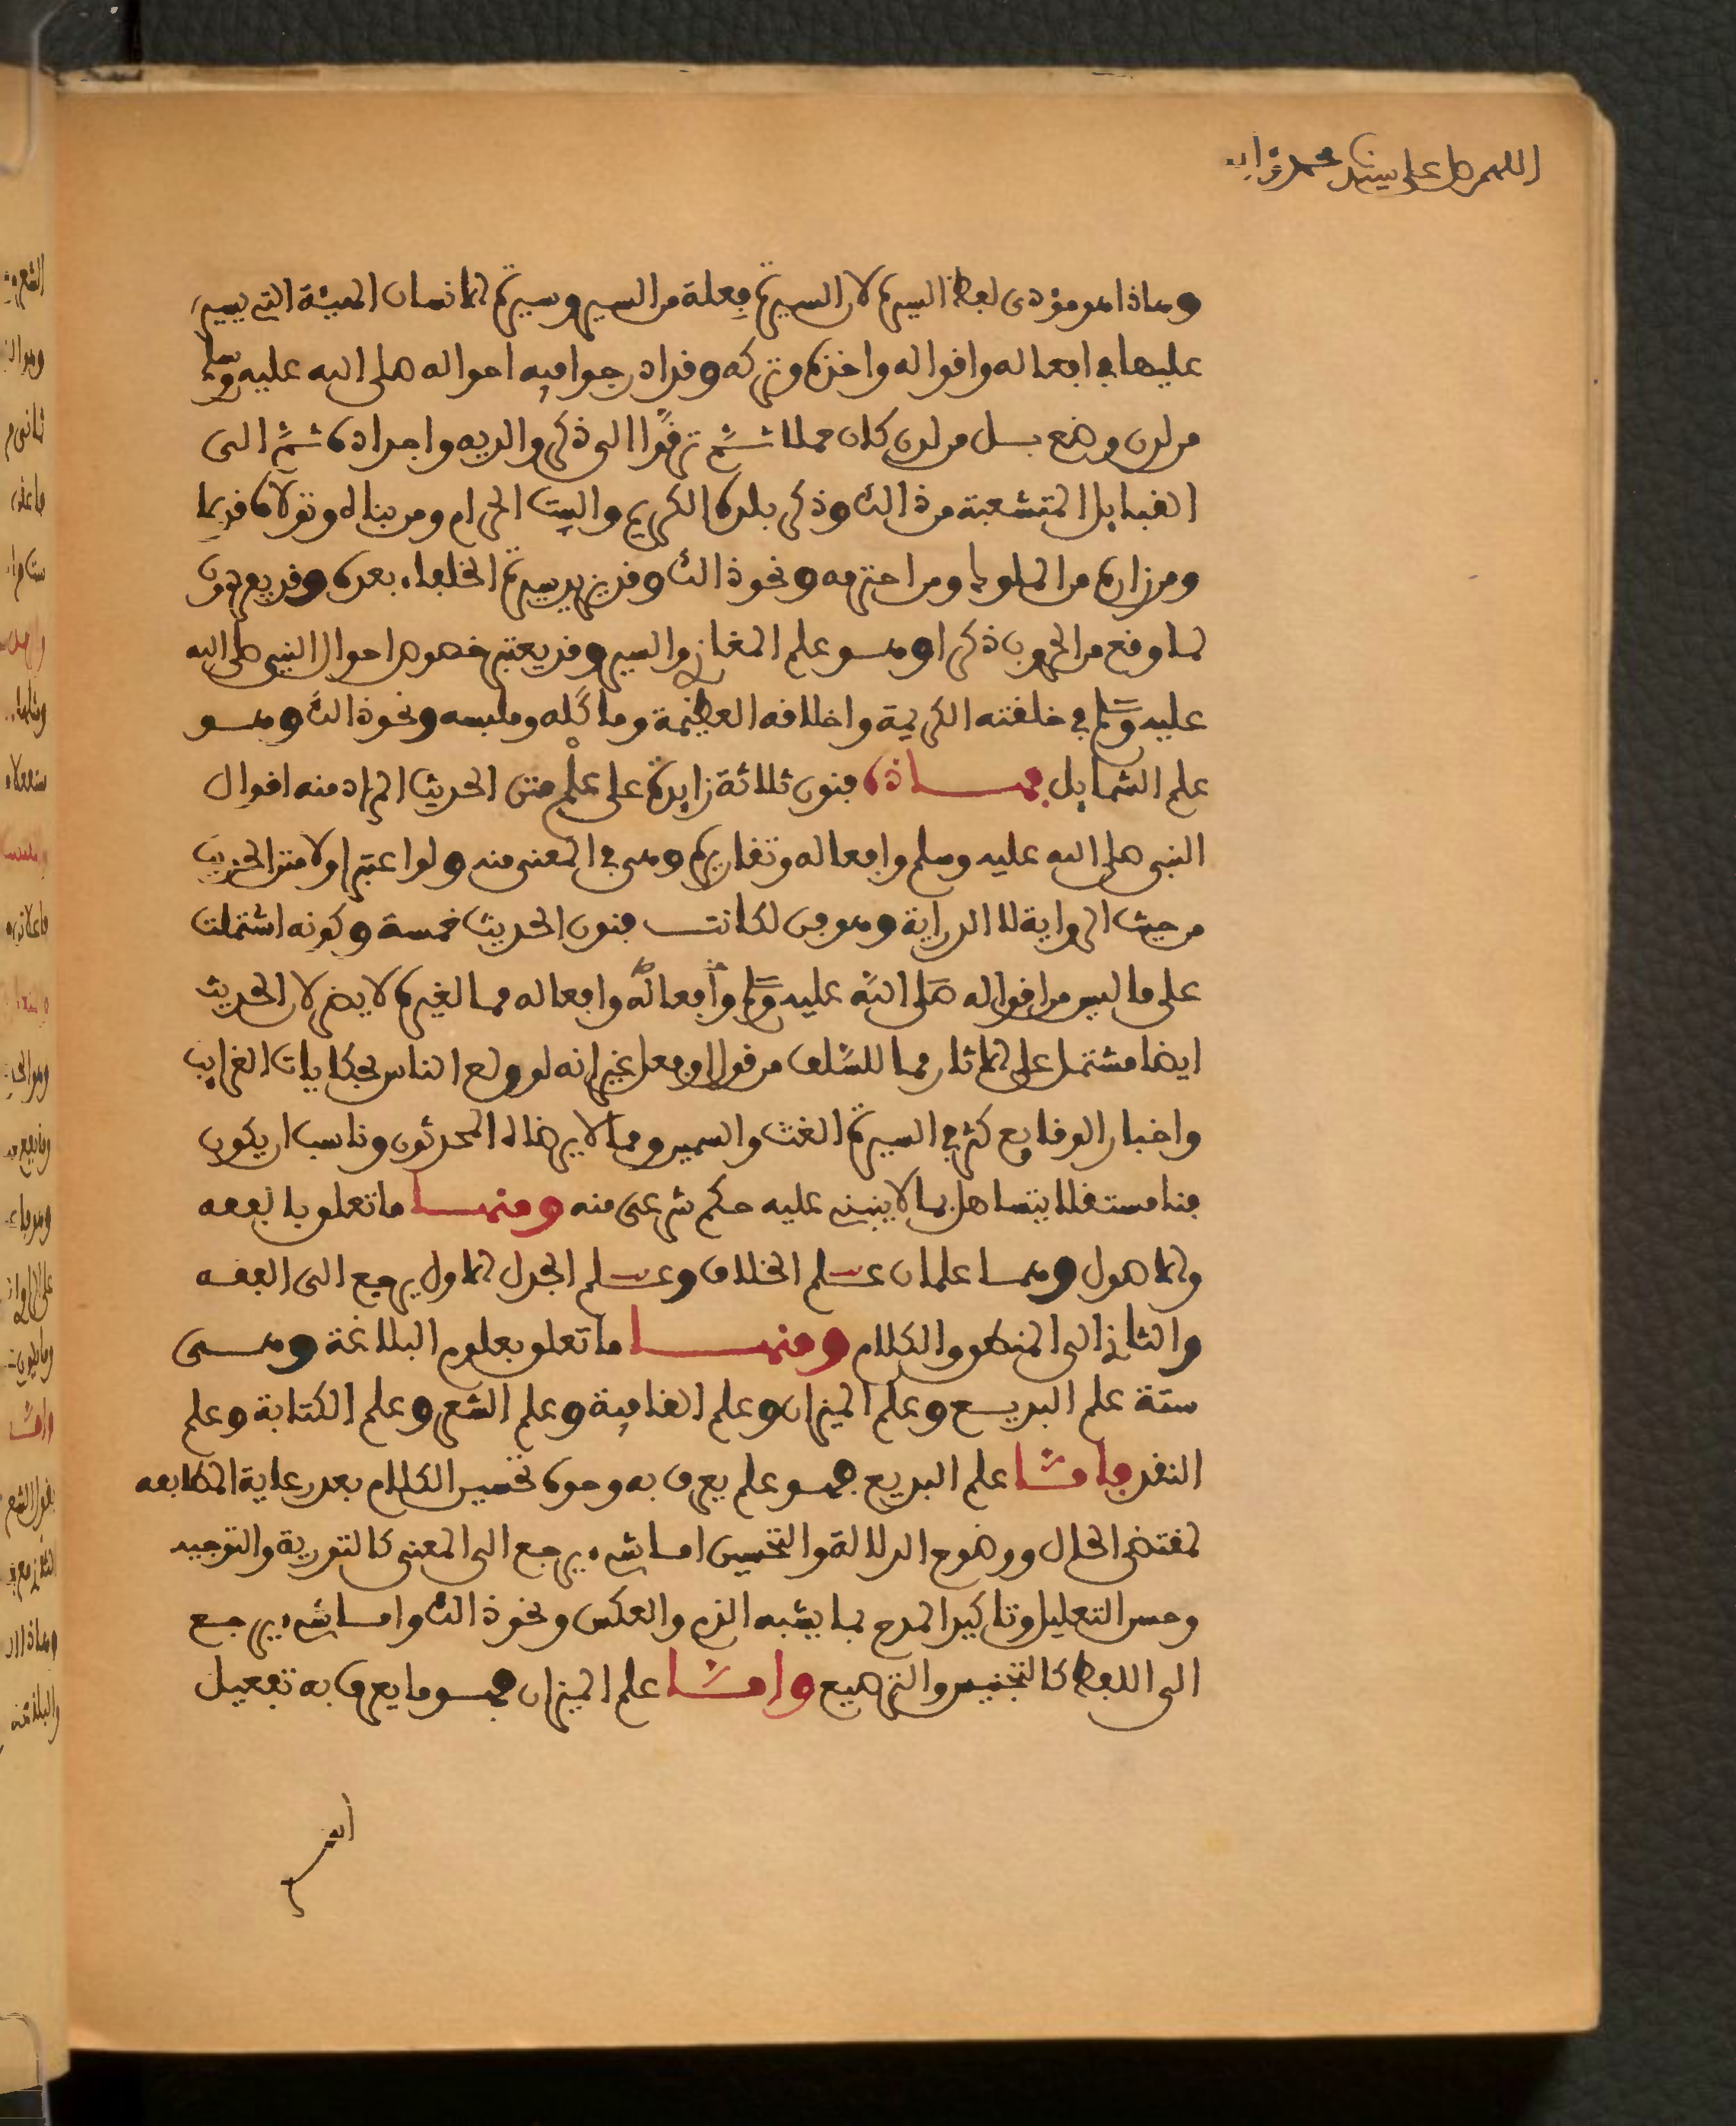 اللهم صل على سيدنا محمد وآله
وهاذا هو مؤدى لفظ السيرة لان السيرة فِعلة من السير وسيرة الانسان الهيئة التي يسير
عليها في افعاله واقواله واخذه وتركه وقد ادرجوا فيه احواله صلى الله عليه وسلم
من لدن وضع بل من لدن كان حملا ثم ترقَّوا الى ذكر والديه واجداده ثم الى
القبايل المتشعبة من ذالك وذكر بلده الكريم والبيت الحرام ومن بناه وتولاه قديما
ومن زاره من الملوك ومن احترمه ونحو ذالك وقد يزيد سيرة الخلفاء بعده وقد يعمدون
لما وقع من الحروب ذكرا وهو علم المغازي والسير وقد يعتبر خصوص احوال النبي صلى الله
عليه وسلم في خلقته الكريمة واخلاقه العظيمة وماكله وملبسه ونحو ذالك وهو
علم الشمايل فهاذه فنون ثلاثة زايدة على علم متن الحديث المراد منه اقوال
النبي صلى الله عليه وسلم وافعاله وتقاريره وهي في المعنى منه ولو اعتبر اولا متن الحديث
من حيث الرواية لا الدراية وهو فن لكانت فنون الحديث خمسة وكونه اشتملت
على ما ليس من اقواله صلى الله عليه وسلم وافعاله وافعاله مما لغيره لا يضر لان الحديث
ايضا مشتمل على الاثار مما للسَّلف من قول او فعل غير انه لو ولع الناس بحكايات الغرايب
واخبار الوقايع كثر في السيرة الغث والسمين ومما لا يرضاه المحدثون وناسب ان يكون
فنا مستقلا يتساهل بما لا ينبني عليه حكم شرعي منه ومنها ما تعلق بالفقه
والاصول وهما علمان علم الخلاف وعلم الجدل الاول يرجع الى الفقه
والثاني الى المنطق والكلام ومنها ما تعلق بعلوم البلاغة وهي
ستة علم البديع وعلم الميزان وعلم القافية وعلم الشعر وعلم الكتابة وعلم
النقد فامَّا علم البديع فهو علم يعرف به وجوه تحسين الكلام بعد رعاية المطابقة
لمقتضى الحال ووضوح الدلالة والتحسين اما شيء يرجع الى المعنى كالتورية والتوجيه
وحسن التعليل وتاكيد المدح بما يشبه الذم والعكس ونحو ذالك واما شيء يرجع
الى اللفظ كالتجنيس والترصيع وامَّا علم الميزان فهو ما يعرف به تفعيل